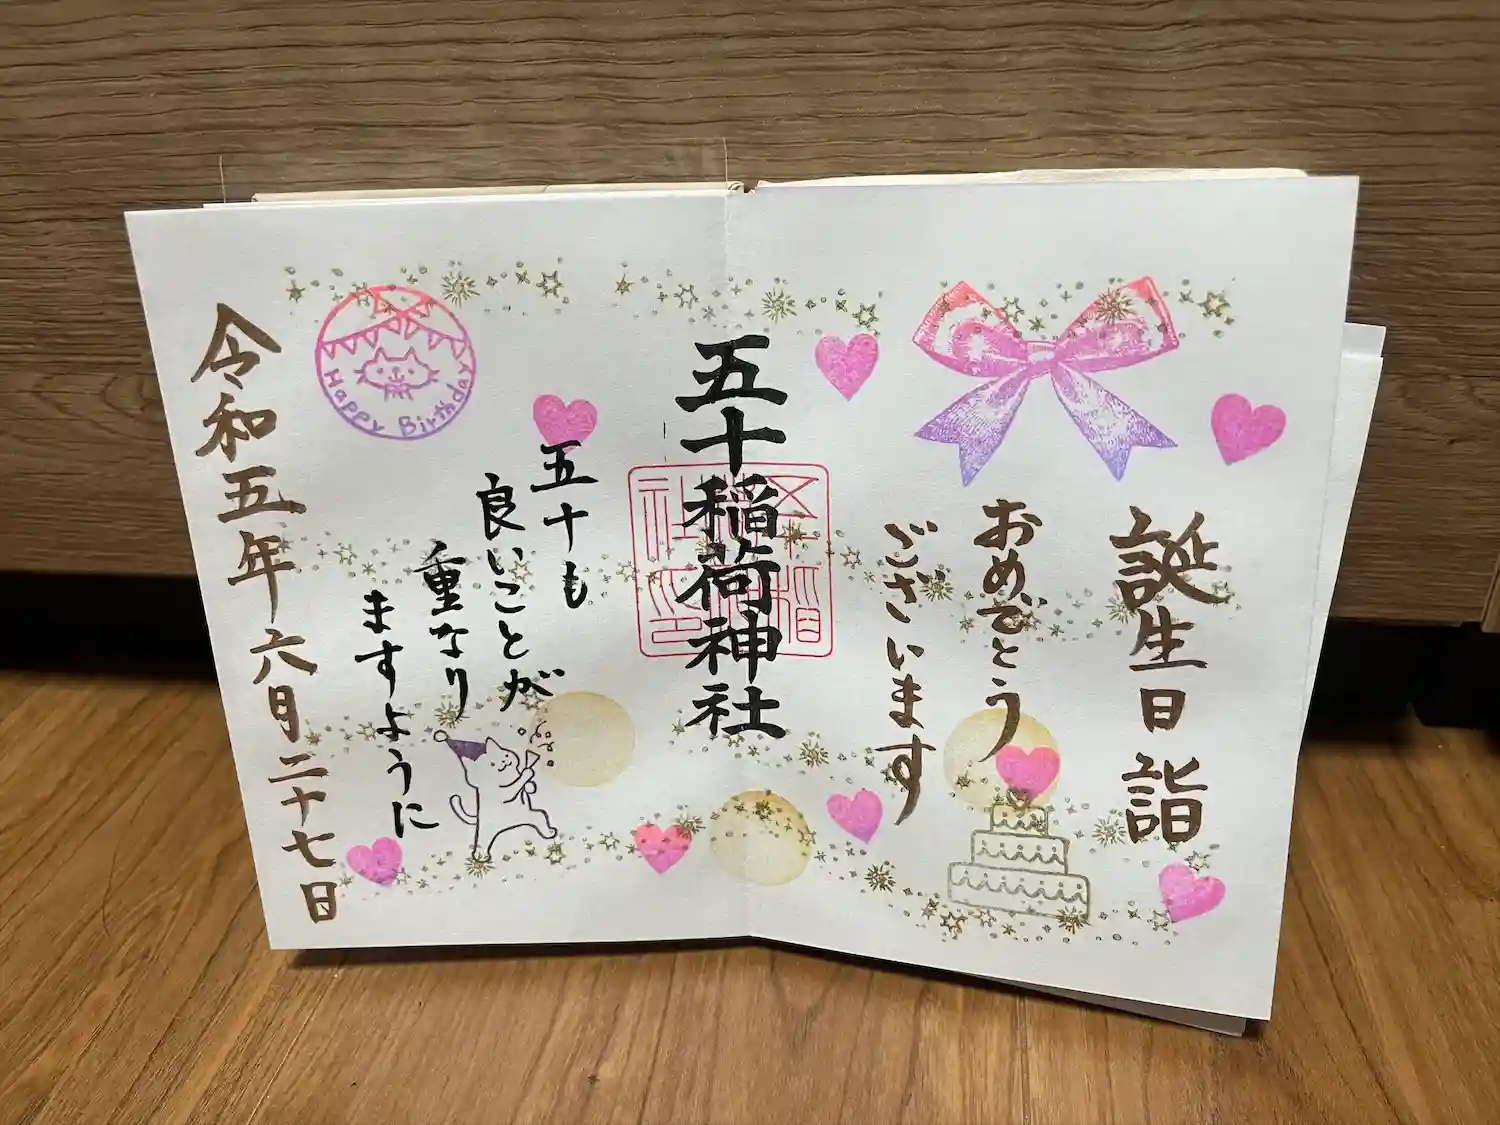 誕生日詣
おめでとう
ございます
五十稲荷神社
五十も
良いことが
重なり
ますように
Happy Birthday
令和五年六月二十七日